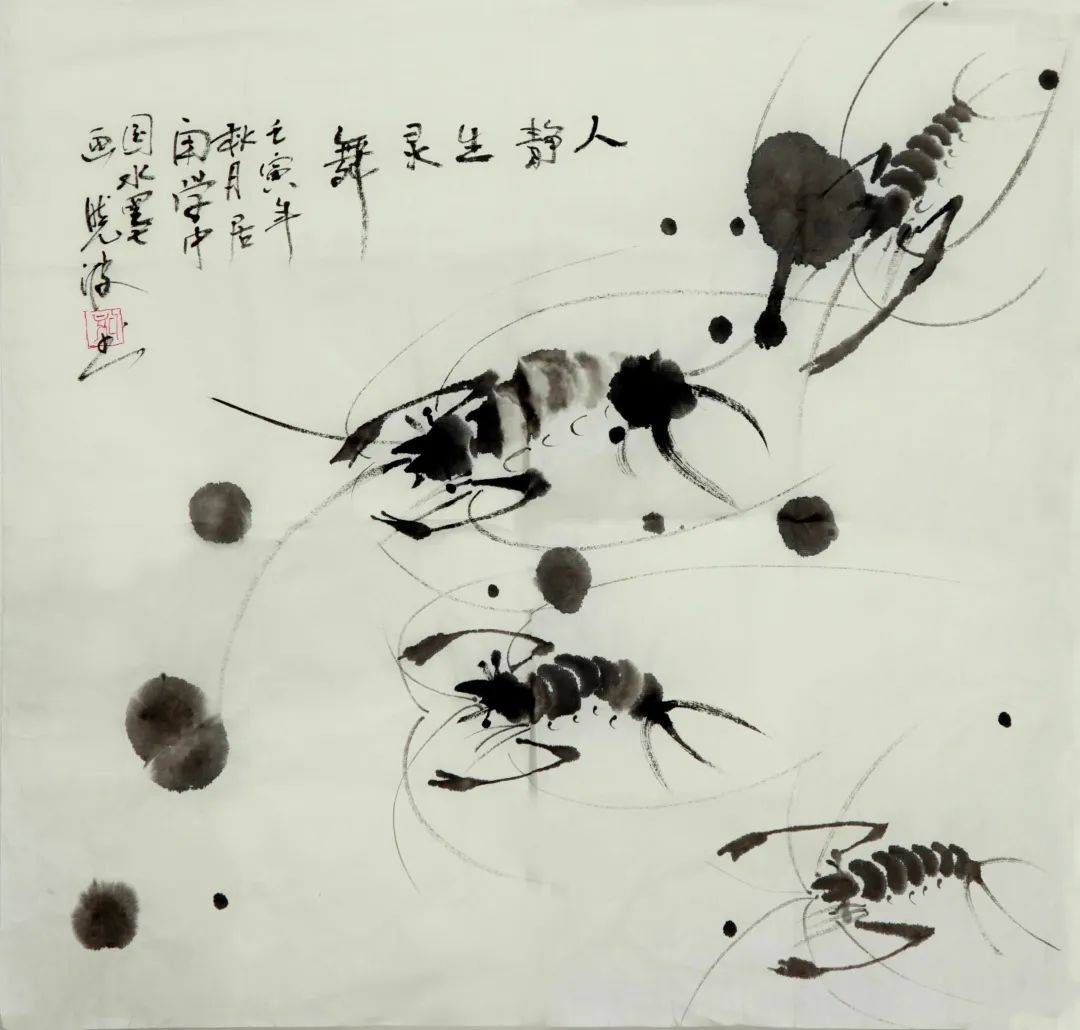 人静生灵舞
壬寅年
秋月居
闲学中
国水墨
画 晓波